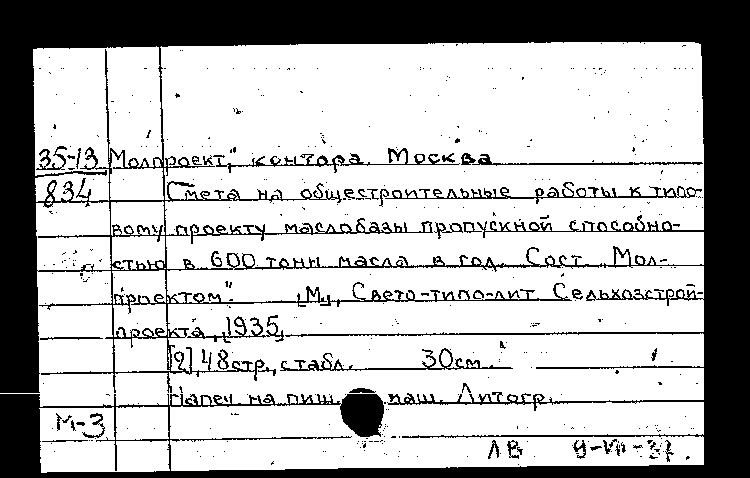 35-13 Молпроект," контора. Москва
834 Смета на общестроительные работы к типо-
вому проекту маслобазы пропускной способно-
стью в 600 тонн масла в год. Сост. „Мол-
проектом". [М], Свето-типо-лит. Сельхозстрой-
проекта, [1935]
[2], 48 стр., с табл. 30 см.
Напеч. на пиш. маш. Литогр.
М-3
ЛВ 9-VII-37.